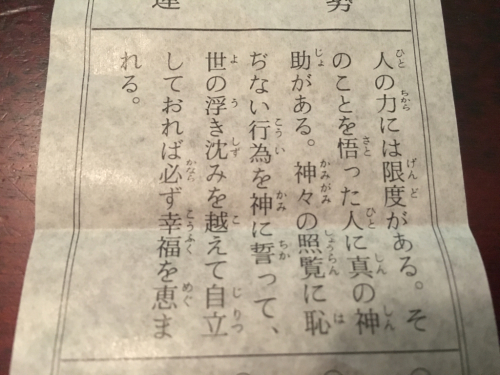 勢
運
人の力には限度がある。そ
のことを悟った人に真の神
助がある。神々の照覧に恥
ぢない行為を神に誓って、
世の浮き沈みを越えて自立
しておれば必ず幸福を恵ま
れる。